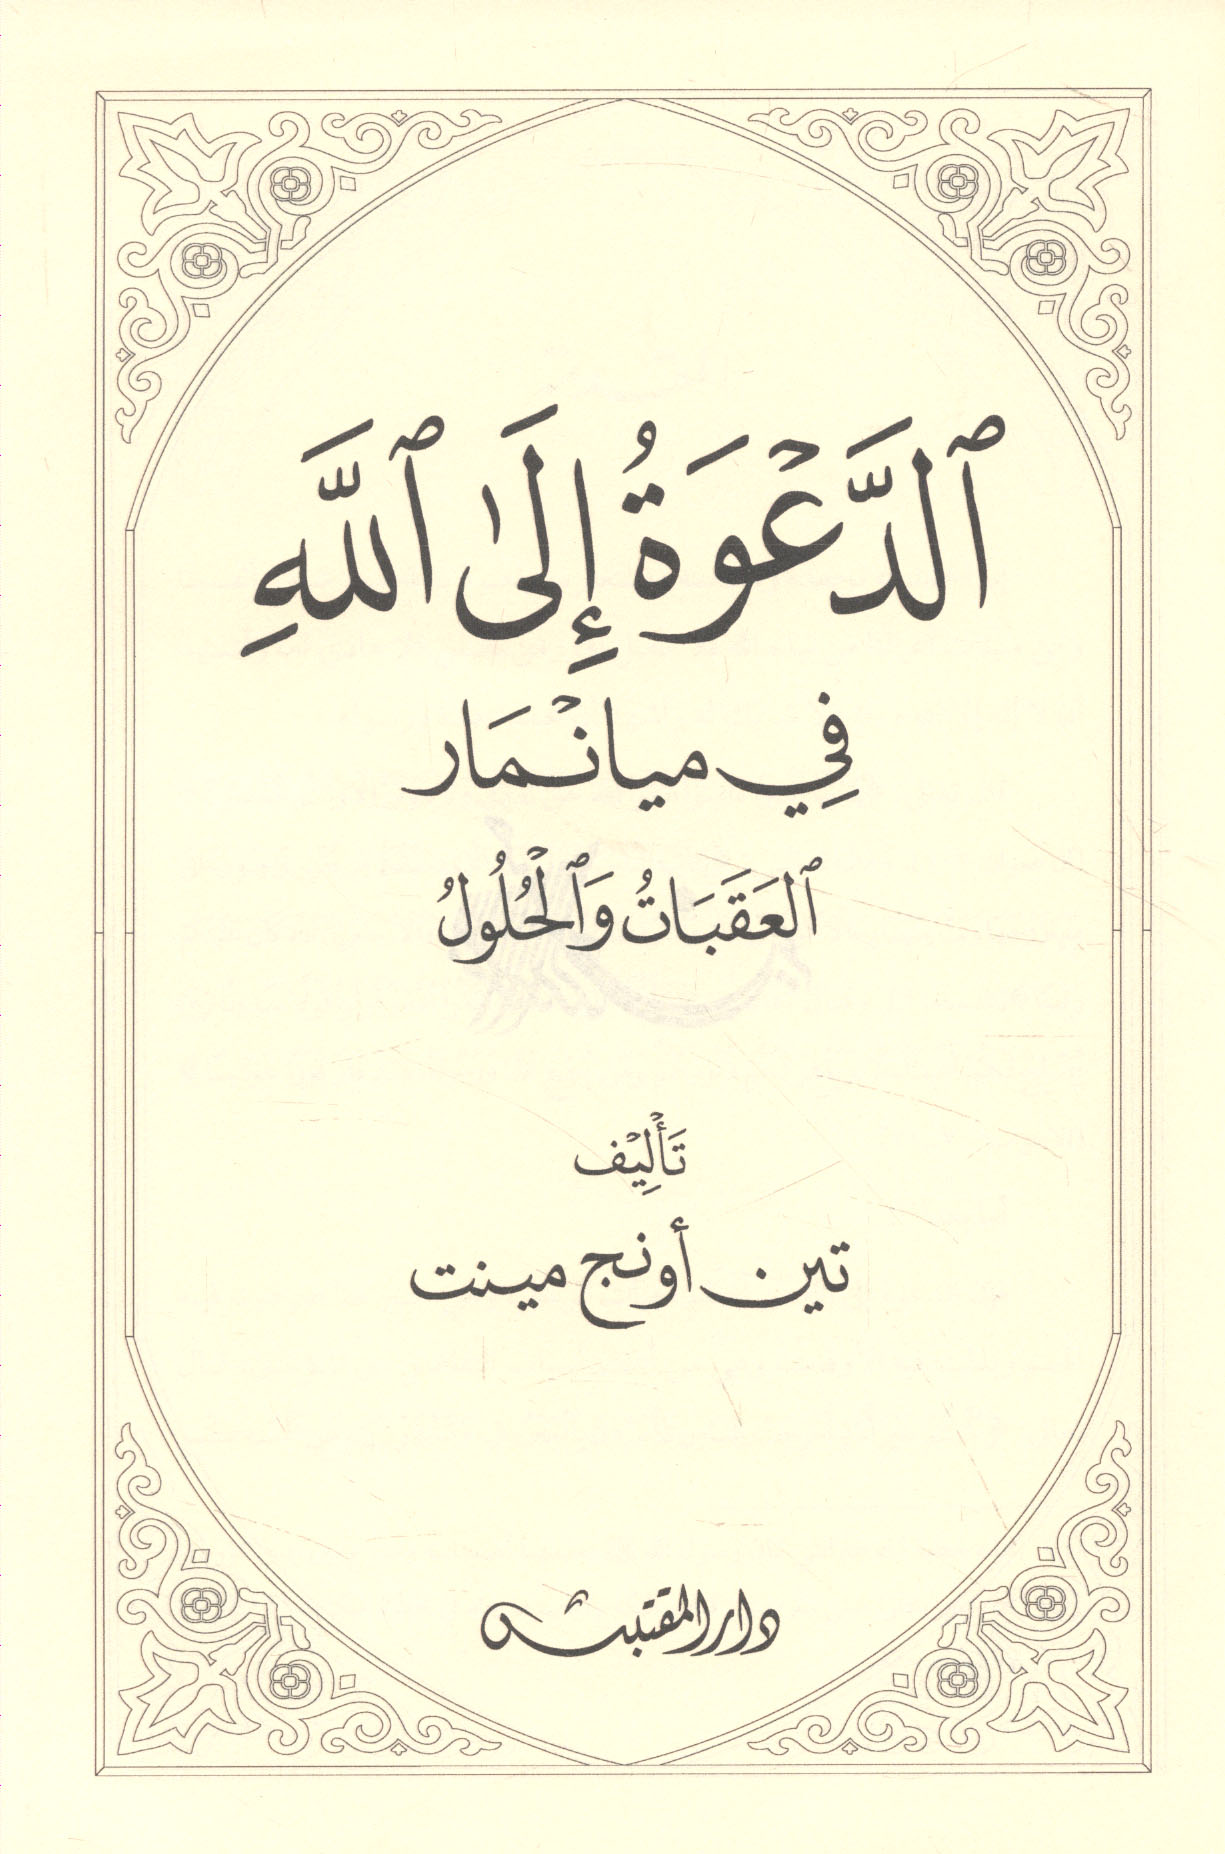 ٱلدَّعْوَةُ إِلَىٰ ٱللَّهِ
فِي ميانْمَار
ٱلعَقَبَاتُ وَٱلْحُلُولُ
تَأْلِيْف
تين أونج مينت
دار المقتبس